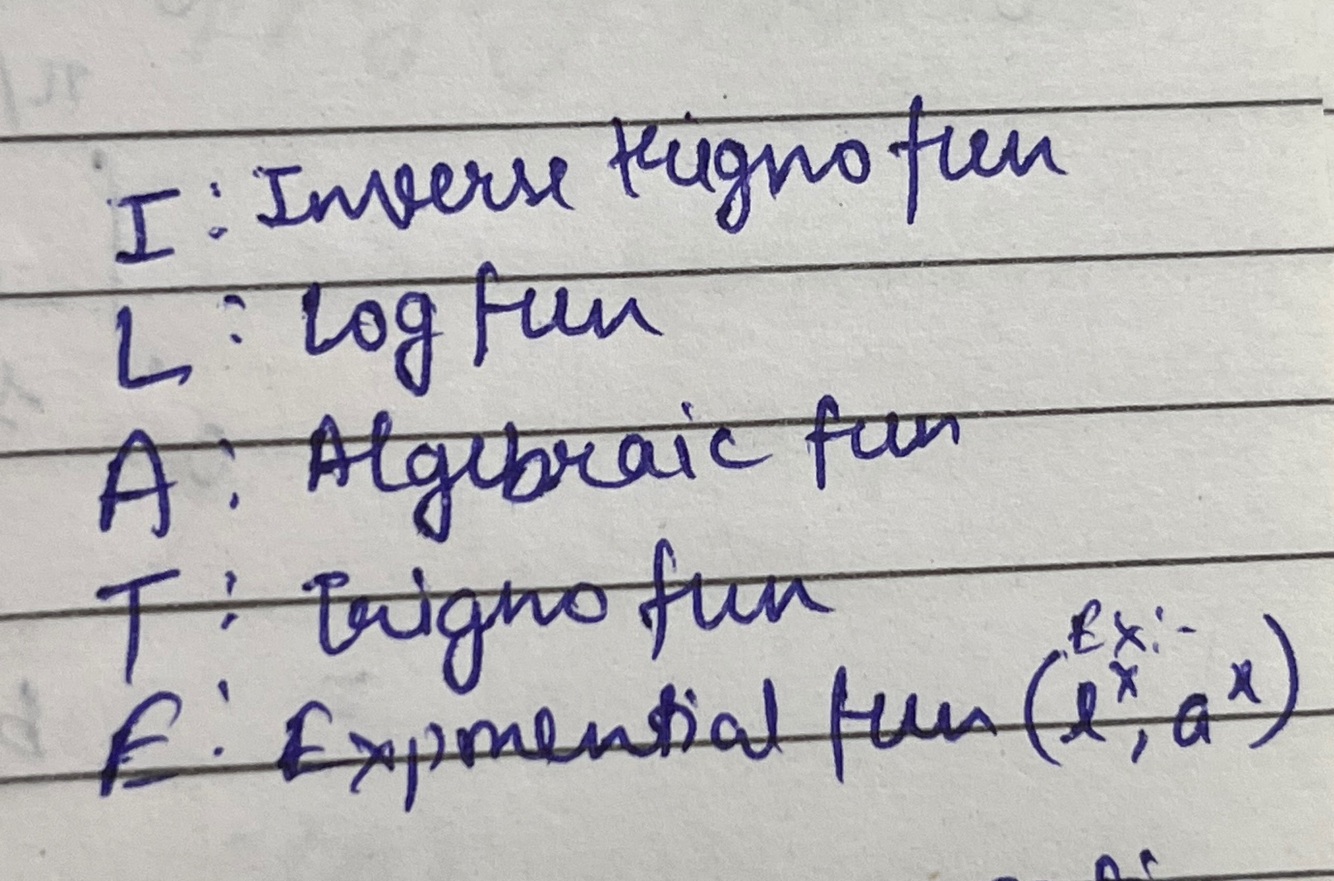 I : Inverse trigno fun
L : Log fun
A : Algebraic fun
T : Trigno fun
E : Exponential fun (Ex:- e^x, a^x)